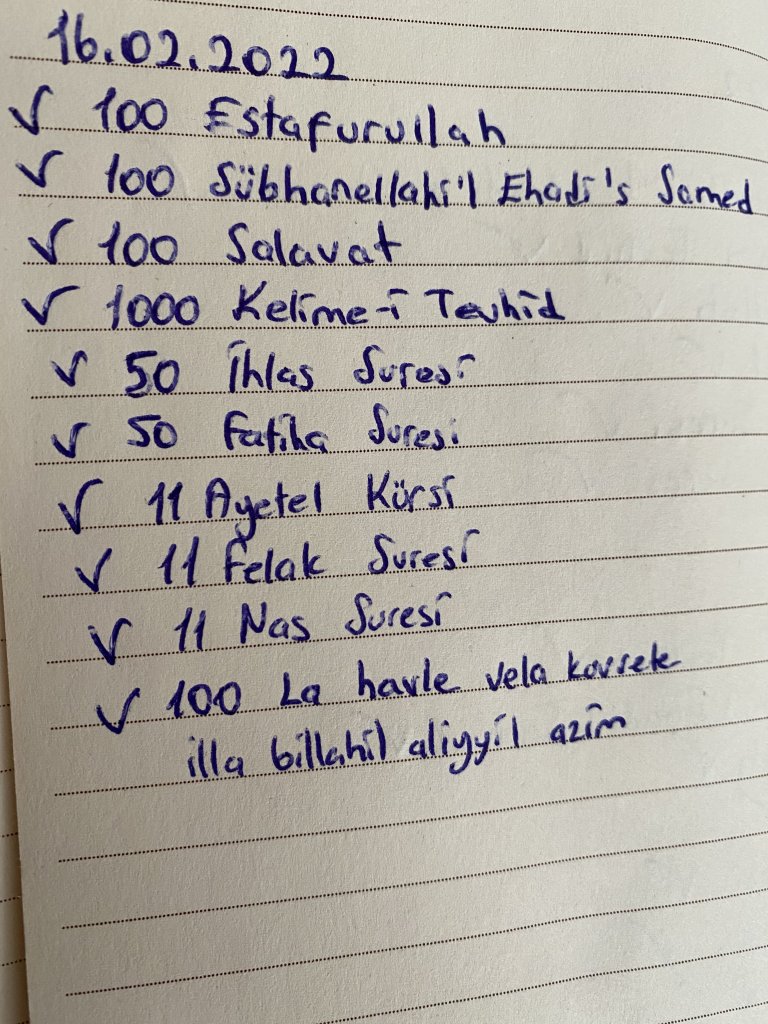 16.02.2022
√ 100 Estafurullah
√ 100 Sübhanellahi'l Ehadi's Samed
√ 100 Salavat
√ 1000 Kelime-i Tevhid
√ 50 İhlas Suresi
√ 50 Fatiha Suresi
√ 11 Ayetel Kürsi
√ 11 Felak Suresi
√ 11 Nas Suresi
√ 100 La havle vela kovvete
illa billahil aliyyil azim